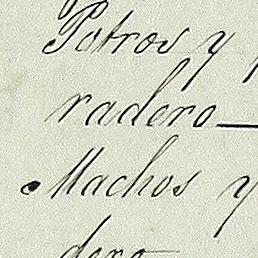 Potros y
radero—
Machos y
dero